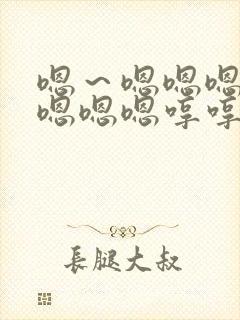 嗯～嗯嗯嗯
嗯嗯嗯哼哼
長腿大叔